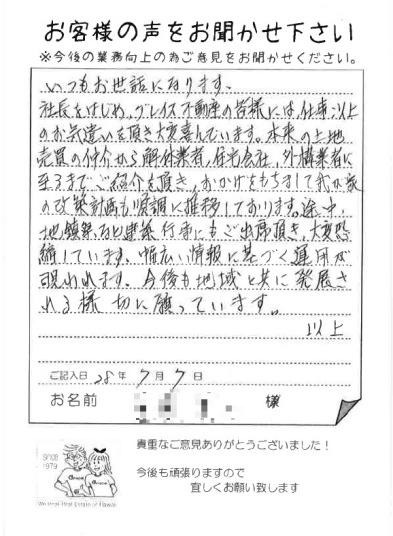 お客様の声をお聞かせ下さい
※今後の業務向上の為ご意見をお聞かせください。
いつもお世話になります。
社長をはじめ、グレイス不動産の皆様には仕事以上
のお気遣いを頂き大変喜んでいます。本来の土地
売買の仲介から解体業者、住宅会社、外構業者に
至るまでご紹介を頂き、おかげをもちまして我が家
の改築計画も順調に推移しております。途中、
地鎮祭など建築行事にもご出席頂き、大変恐
縮しています。幅広い情報に基づく運用が
現われます。今後も地域と共に発展さ
れる様切に願っています。
以上
ご記入日 28年 7月 7日
お名前 様
SINCE
1979
貴重なご意見ありがとうございました！
今後も頑張りますので
宜しくお願い致します
Real Estate of Hawaii